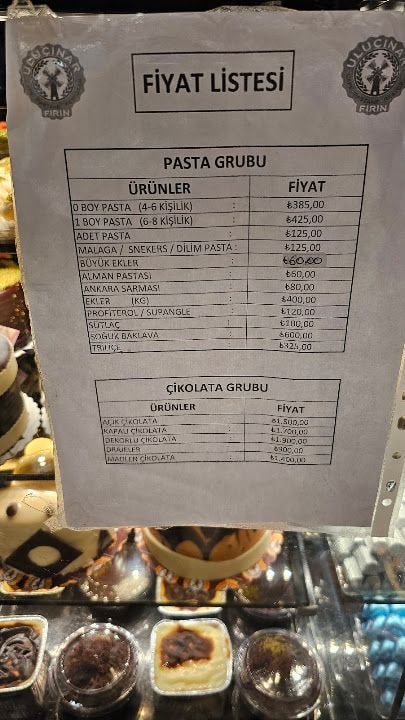 ULUÇINAR
FIRIN
ULUÇINAR
FIRIN
FİYAT LİSTESİ
PASTA GRUBU
ÜRÜNLER FİYAT
0 BOY PASTA (4-6 KİŞİLİK) : ₺385,00
1 BOY PASTA (6-8 KİŞİLİK) : ₺425,00
ADET PASTA : ₺125,00
MALAGA / SNEKERS / DİLİM PASTA : ₺125,00
BÜYÜK EKLER ₺60,00
ALMAN PASTASI : ₺60,00
ANKARA SARMASI : ₺80,00
EKLER (KG) : ₺400,00
PROFİTEROL / SUPANGLE : ₺120,00
SÜTLAÇ : ₺100,00
SOĞUK BAKLAVA : ₺600,00
TRİLİÇE : ₺325,00
ÇİKOLATA GRUBU
ÜRÜNLER FİYAT
AÇIK ÇİKOLATA ₺1.500,00
KAPALI ÇİKOLATA ₺1.700,00
DEKORLU ÇİKOLATA ₺1.900,00
DRAJELER ₺900,00
MADLEN ÇİKOLATA ₺1.400,00